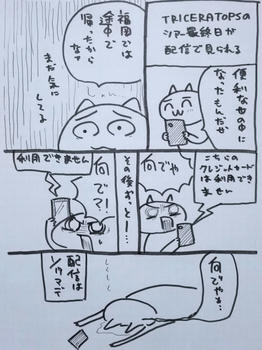 TRICERATOPSの
ツアー最終日が
配信で見られる
便利な世の中に
なったもんだぜ
福岡では
途中で
帰ったから
なァ
まだ気に
してる
こちらの
クレジットカード
は利用でき
ません
何でや
その後ずっと…
利用できません
何で?!
何でやぁ…
しくしく
配信は